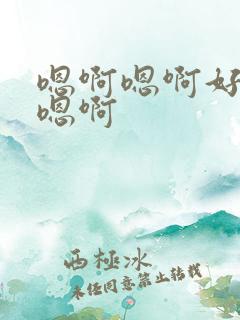 嗯啊嗯啊好
嗯啊
西極冰
未经同意禁止转载